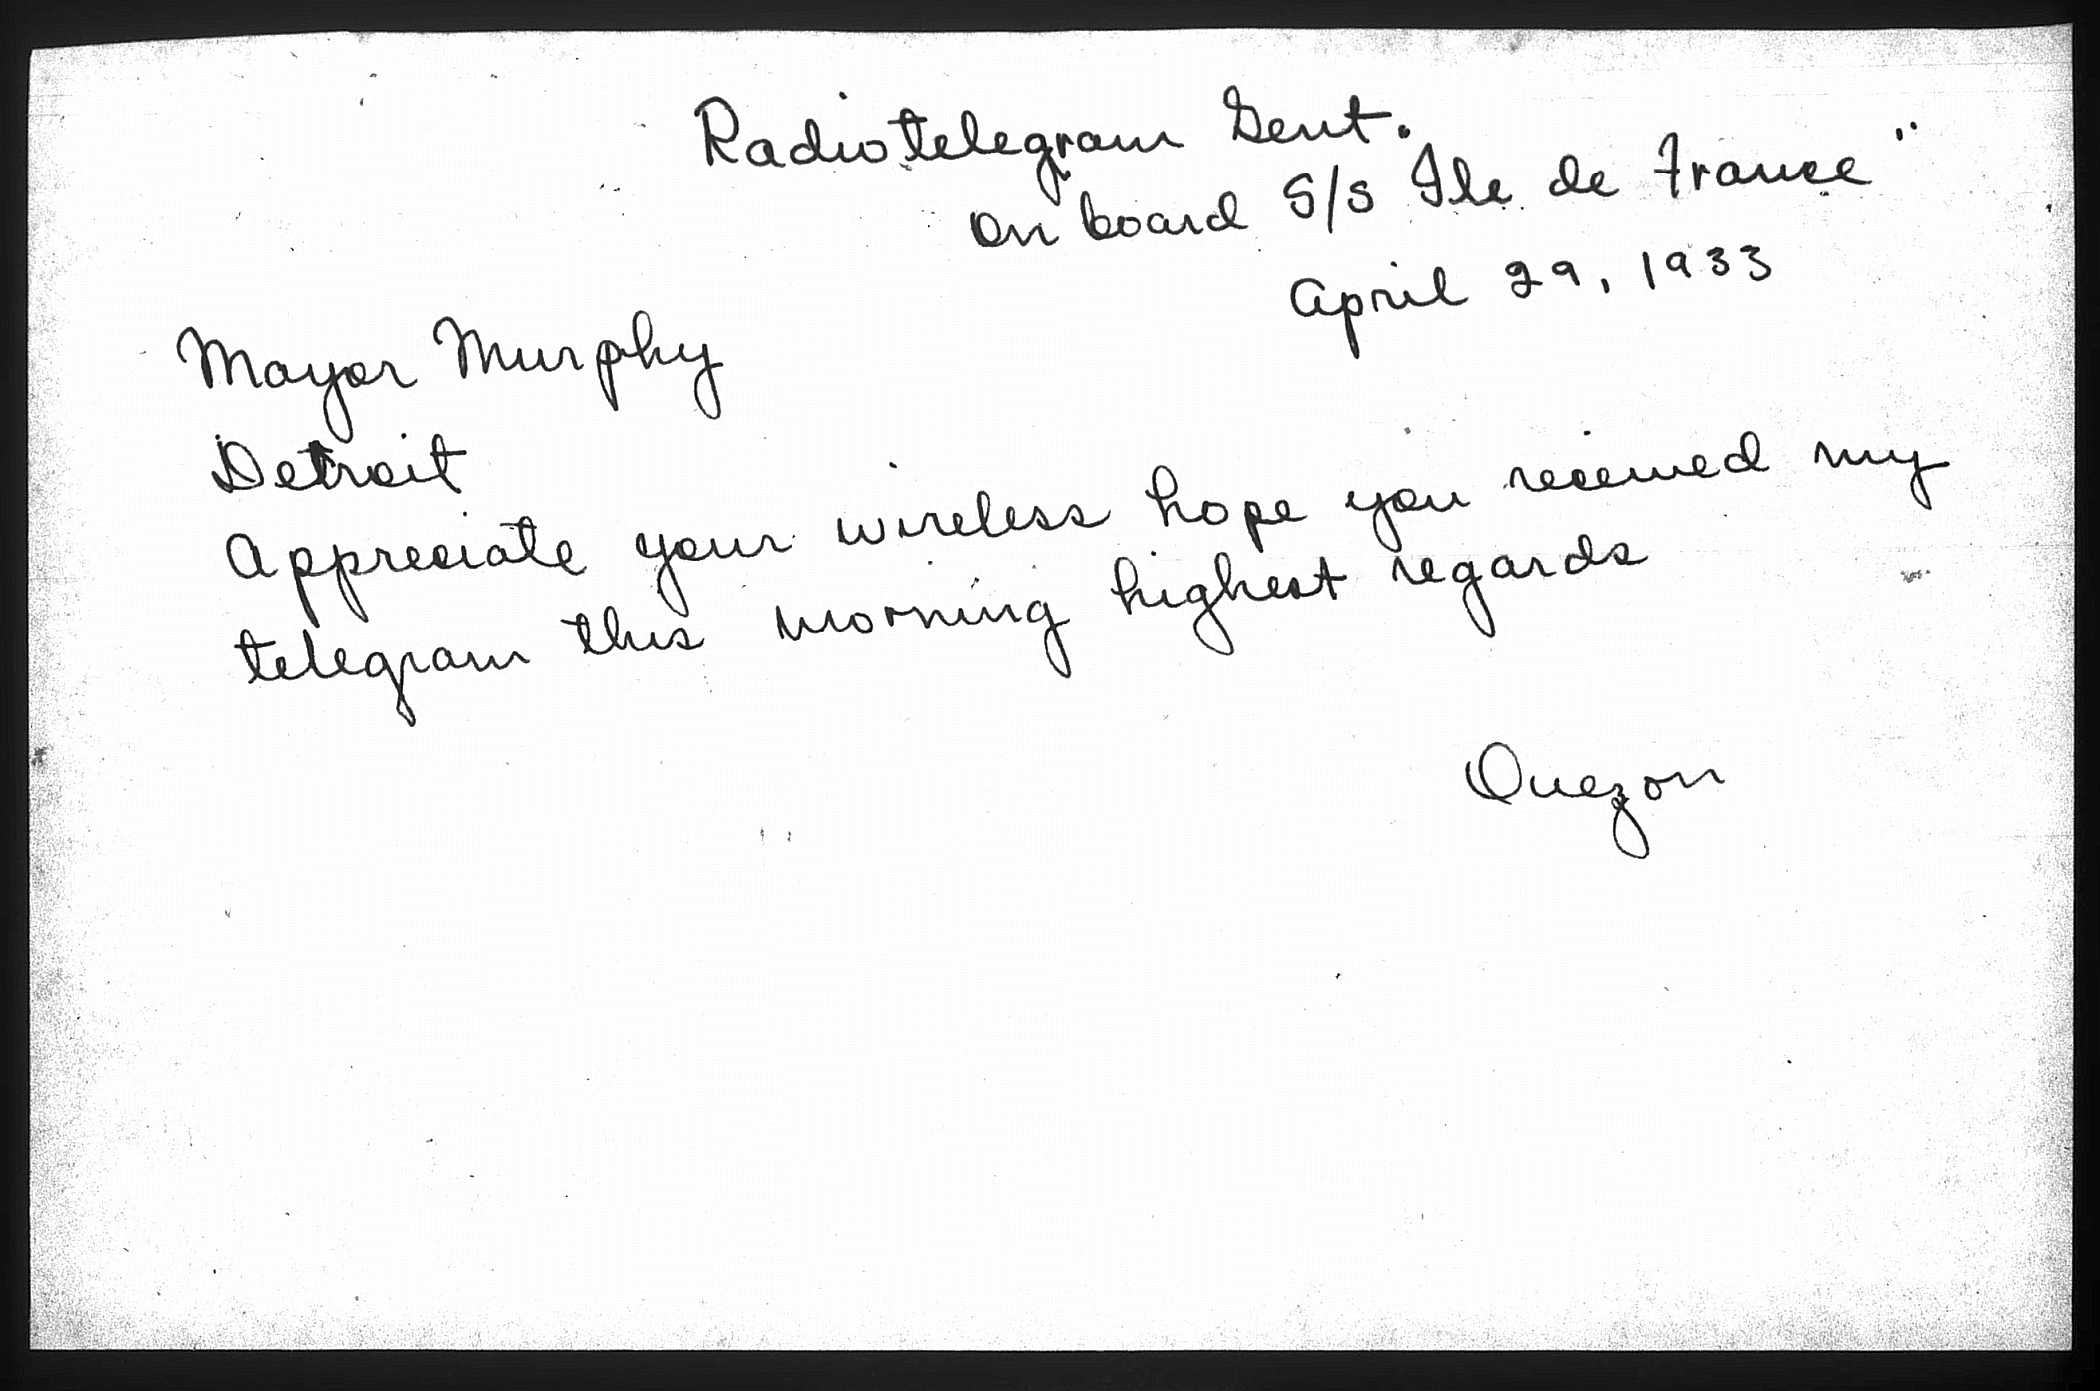 Radiotelegram Sent.
On board S/S Ile de France"
April 29, 1933
Mayor Murphy
Detroit
Appreciate your wireless hope you received my
telegram this morning highest regards
Quezon